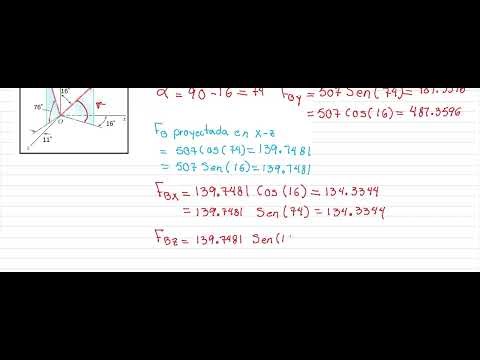 16°
76°
11°
16°
α = 90 - 16 = 74
F_By = 507 Sen(74) = 487.3596
= 507 Cos(16) = 487.3596
F_B proyectada en x-z
= 507 Cos(74) = 139.7481
= 507 Sen(16) = 139.7481
F_Bx = 139.7481 Cos(16) = 134.3344
= 139.7481 Sen(74) = 134.3344
F_Bz = 139.7481 Sen(1